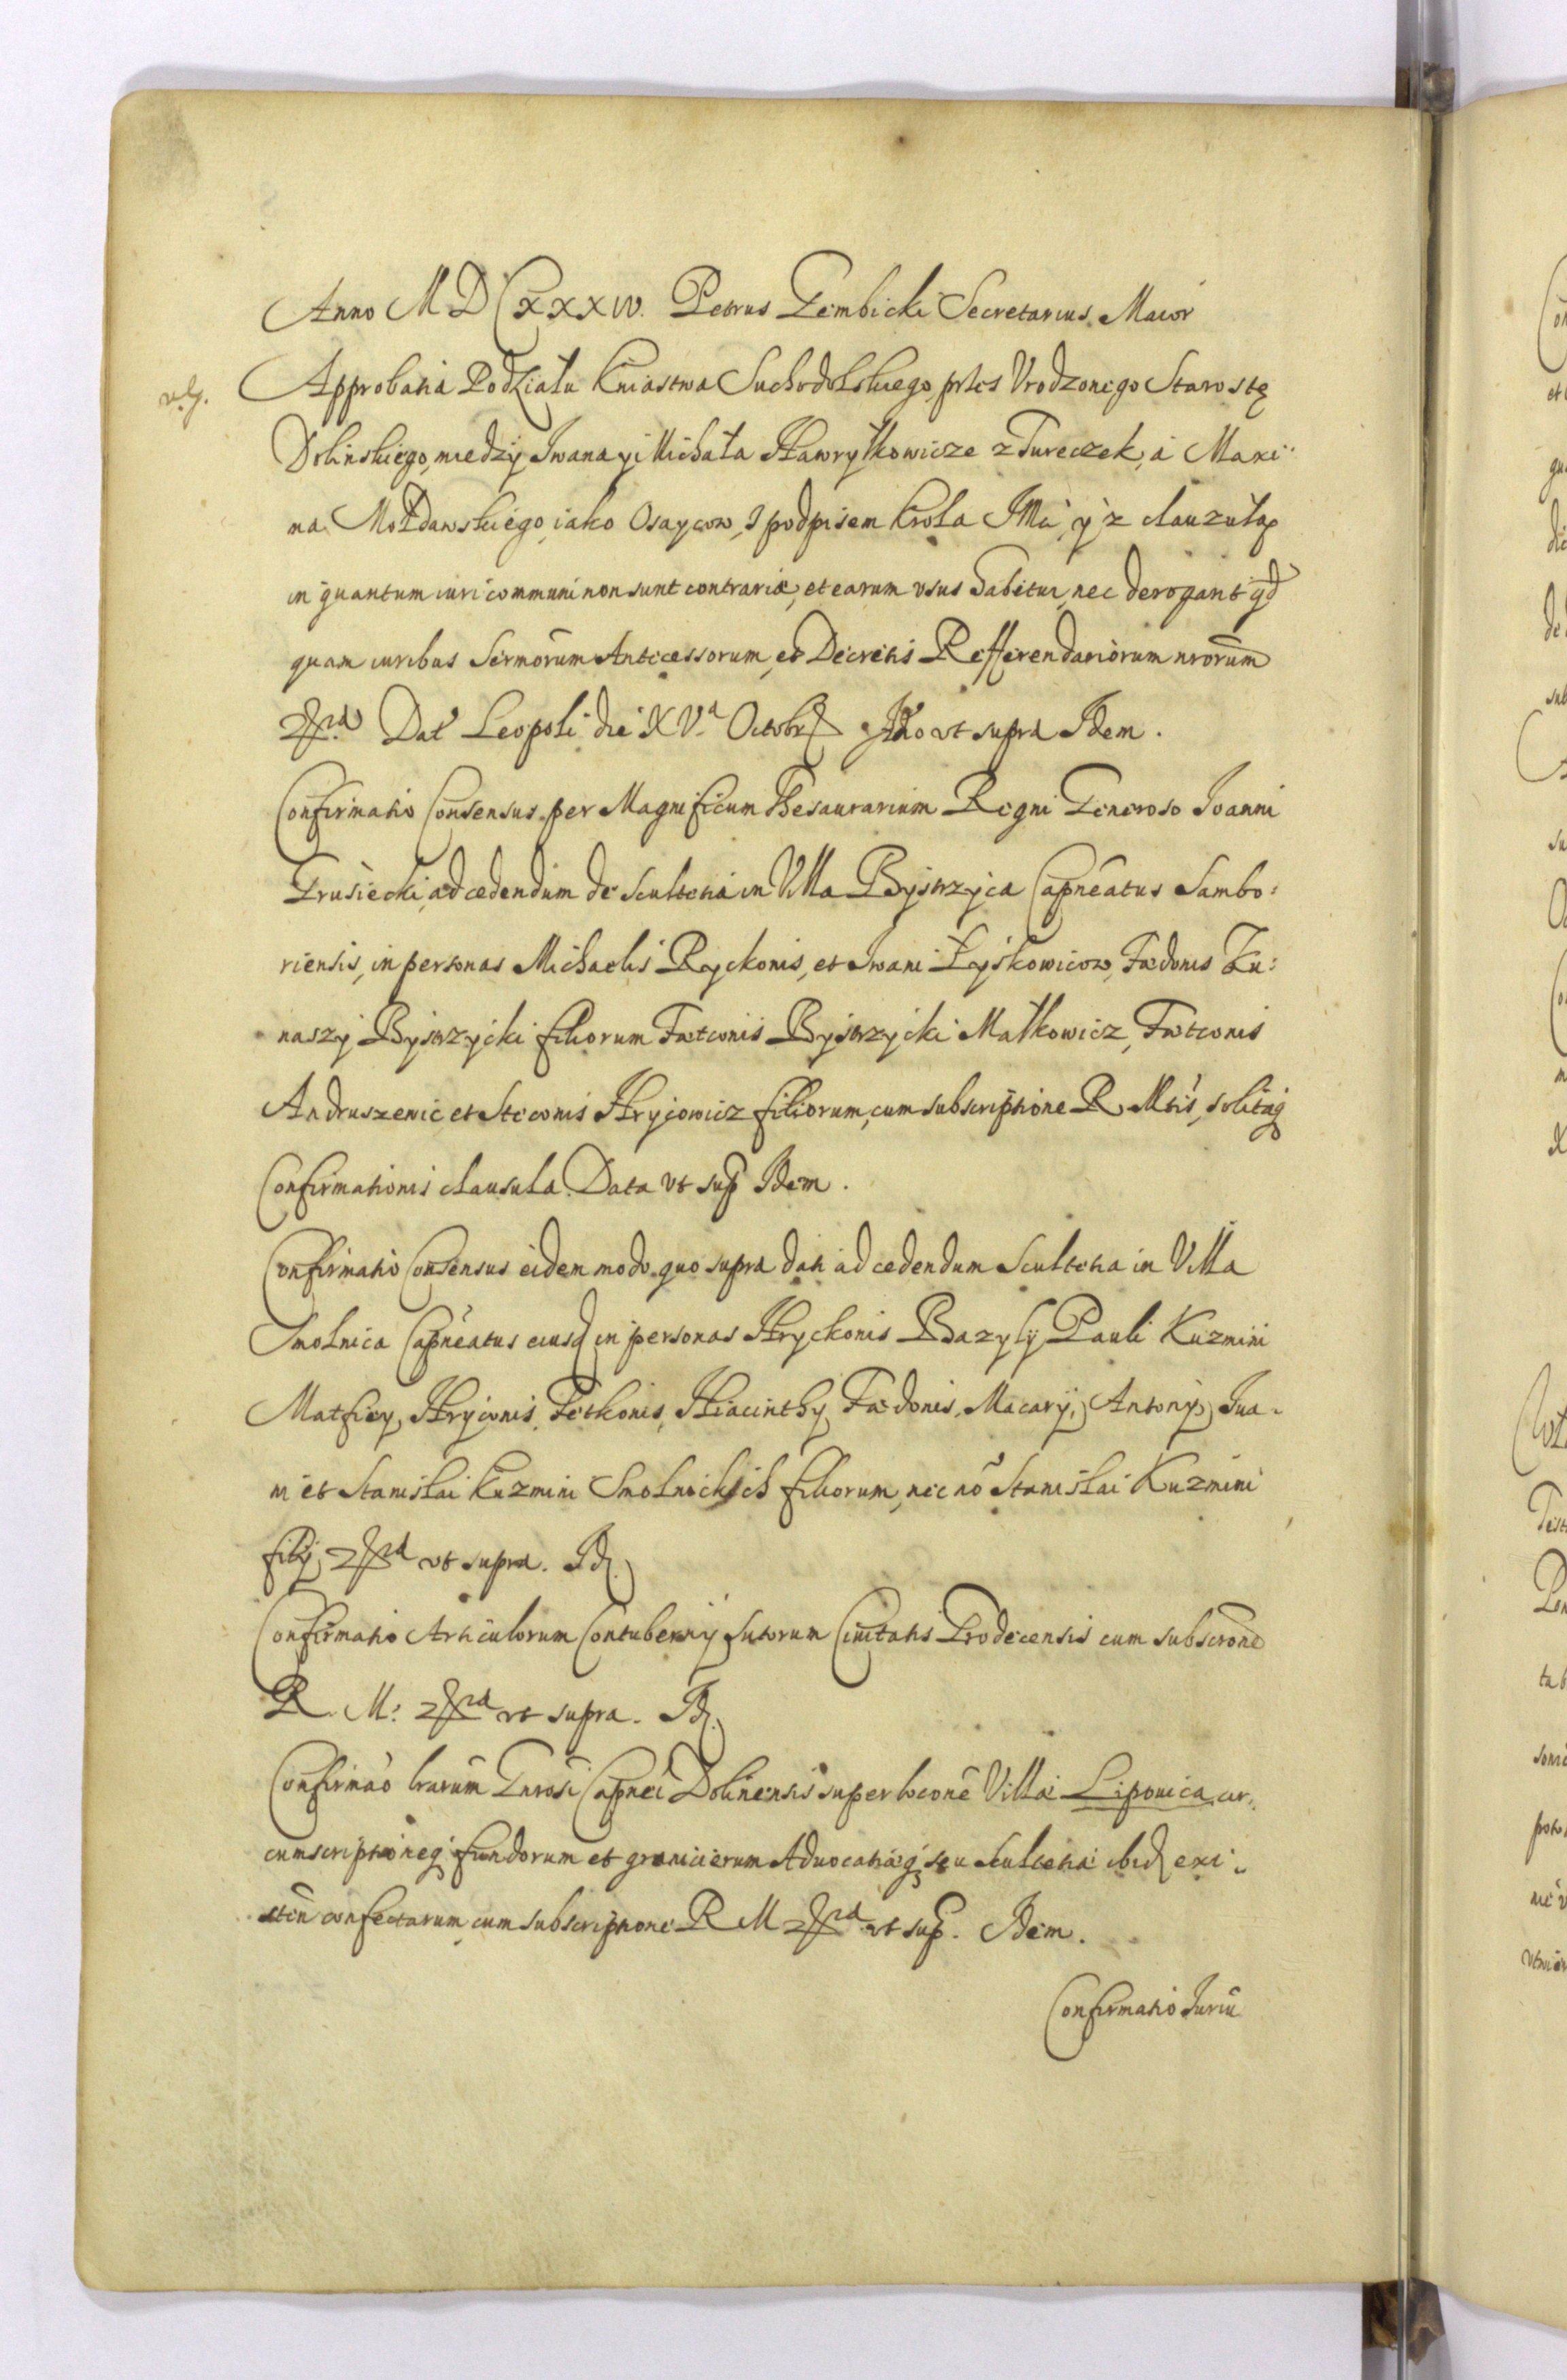 Anno MDCXXXIV. Petrus Gembicki Secretarius Maior
Approbatia Podziału Kniastwa Suchodolskiego, przes Vrodzonego Starostę
Dolinskiego, miedzy Iwana yi Michała Hawryłkowicze z Tureczek, a Maxi:
ma Mołdawskiego, iako Osaycow, z podpisem Krola JMći, y z clauzułą
in quantum iuri communi non sunt contrariæ, et earum vsus habetur, nec derogant
quam iuribus Sermorum Antecessorum, et Decretis Refferendariorum nrorum
Dat Leopoli die XVa Octobr Ao vt supra Idem.
Confirmatio Consensus per Magnificum Thesaurarium Regni Generoso Joanni
Grusiecki, ad cedendum de Scultetia in Villa Bystrzyca Capneatus Sambo:
riensis, in personas Michaelis Ryckonis, et Iwani Łyskowicow, Fædonis Ku:
naszy Bystrzycki filiorum Fætconis Bystrzycki Małkowicz, Fætconis
Andruszewic et Steconis Hrycowicz filiorum, cum subscriptione R Mtis, solitaq
Confirmationis clausula. Data vt sup Idem.
Confirmatio Consensus eidem modo quo supra dati ad cedendum Scultetia in Villa
Smolnica Capneatus eiusd in personas Hryckonis Bazylij Pauli Kuzmini
Matfiey, Hryconis, Petkonis, Hiacinthy, Fædonis, Macary, Antony, Iua-
ni et Stanislai Kuzmini Smolnickich filiorum, nec nō Stanislai Kuzmini
filij vt supra. Id.
Confirmatio Articulorum Contubernij Sutorum Ciuitatis Grodecensis cum subscrone
R. M: vt supra. Id.
Confirmao lrarum Gnrosi Capnei Dolinensis super locone Villæ Lipouica, cir:
cumscriptioneq fundorum et granicierum Aduocatiæq seu Scultetiæ ibid exi:
sten confectarum, cum subscriptione R M vt sup. Idem.
Confirmatio Iuriū